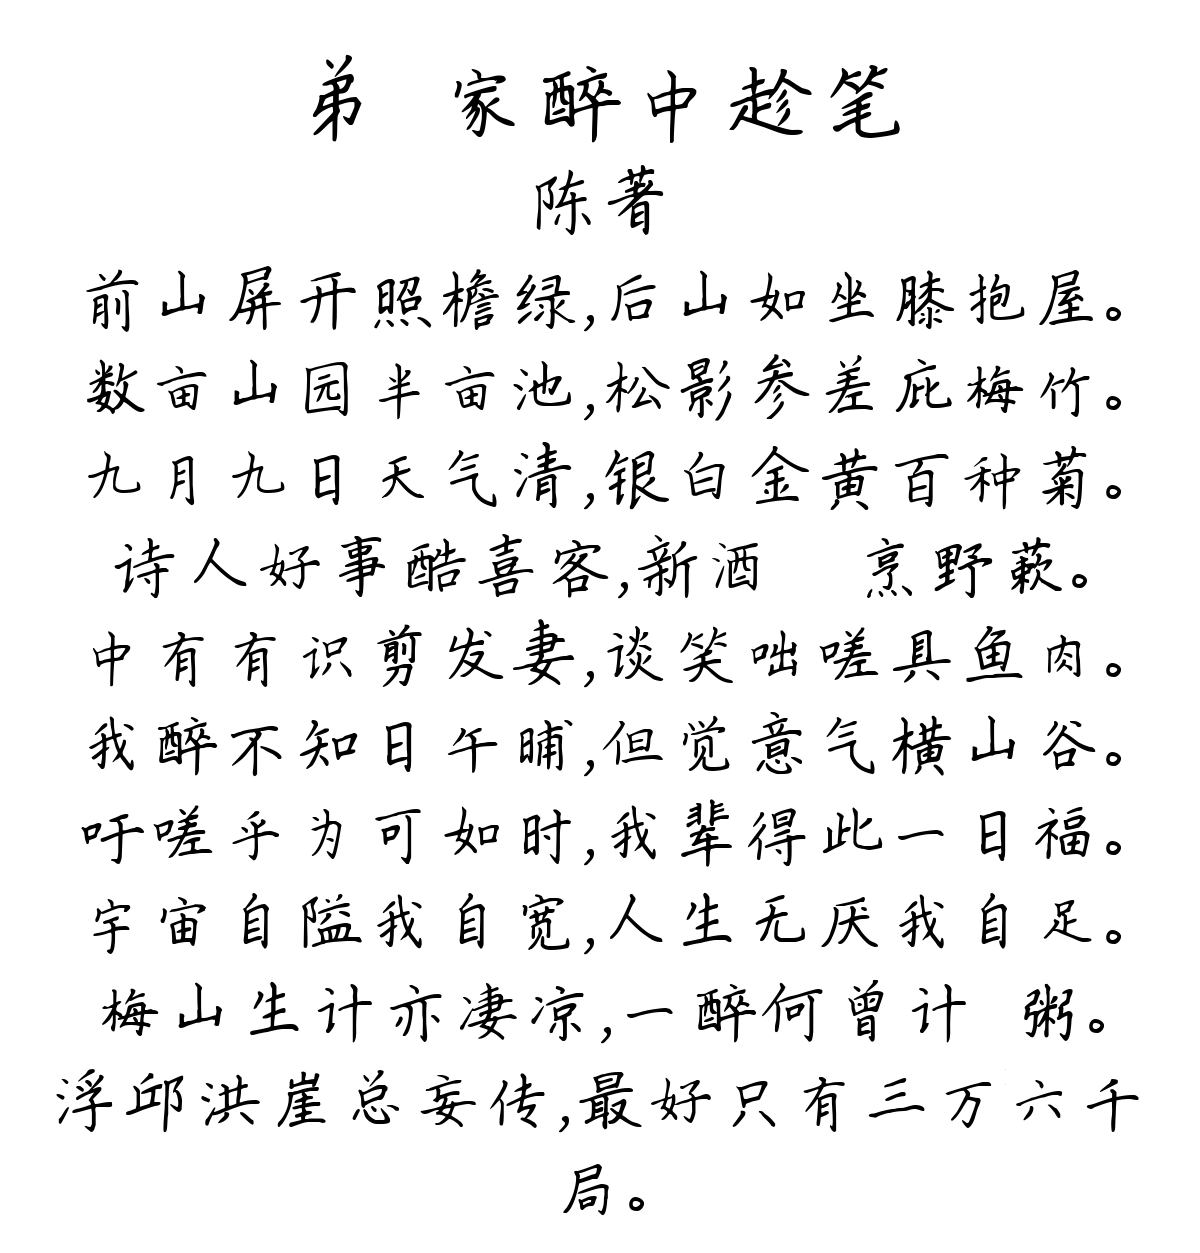 弟 家醉中趁笔
陈著
前山屏开照檐绿,后山如坐膝抱屋。
数亩山园半亩池,松影参差庇梅竹。
九月九日天气清,银白金黄百种菊。
诗人好事酷喜客,新酒 烹野蔌。
中有有识剪发妻,谈笑咄嗟具鱼肉。
我醉不知日午晡,但觉意气横山谷。
吁嗟乎为可如时,我辈得此一日福。
宇宙自隘我自宽,人生无厌我自足。
梅山生计亦凄凉,一醉何曾计 粥。
浮邱洪崖总妄传,最好只有三万六千
局。